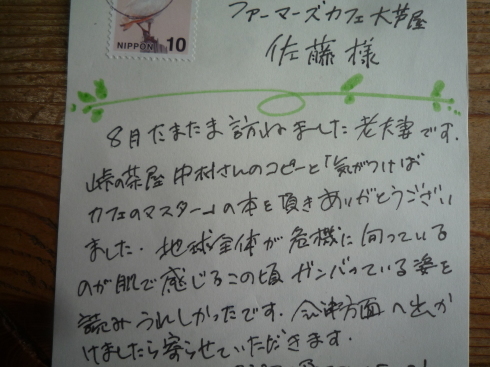 NIPPON 10
ファーマーズカフェ大芦屋
佐藤様
8月たまたま訪ねました老夫妻です.
峠の茶屋 中村さんのコピーと「気がつけば
カフェのマスター」の本を頂きありがとうござい
ました. 地球全体が危機に向っている
のが肌で感じるこの頃 ガンバっている姿を
読みうれしかったです. 会津方面へ出か
けましたら寄らせていただきます.